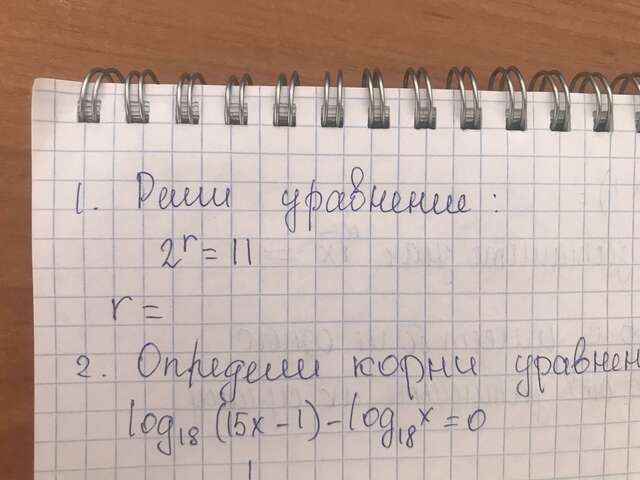 1. Реши уравнение:
2^r = 11
r =
2. Определи корни уравнен
log₁₈ (15x − 1) − log₁₈ x = 0